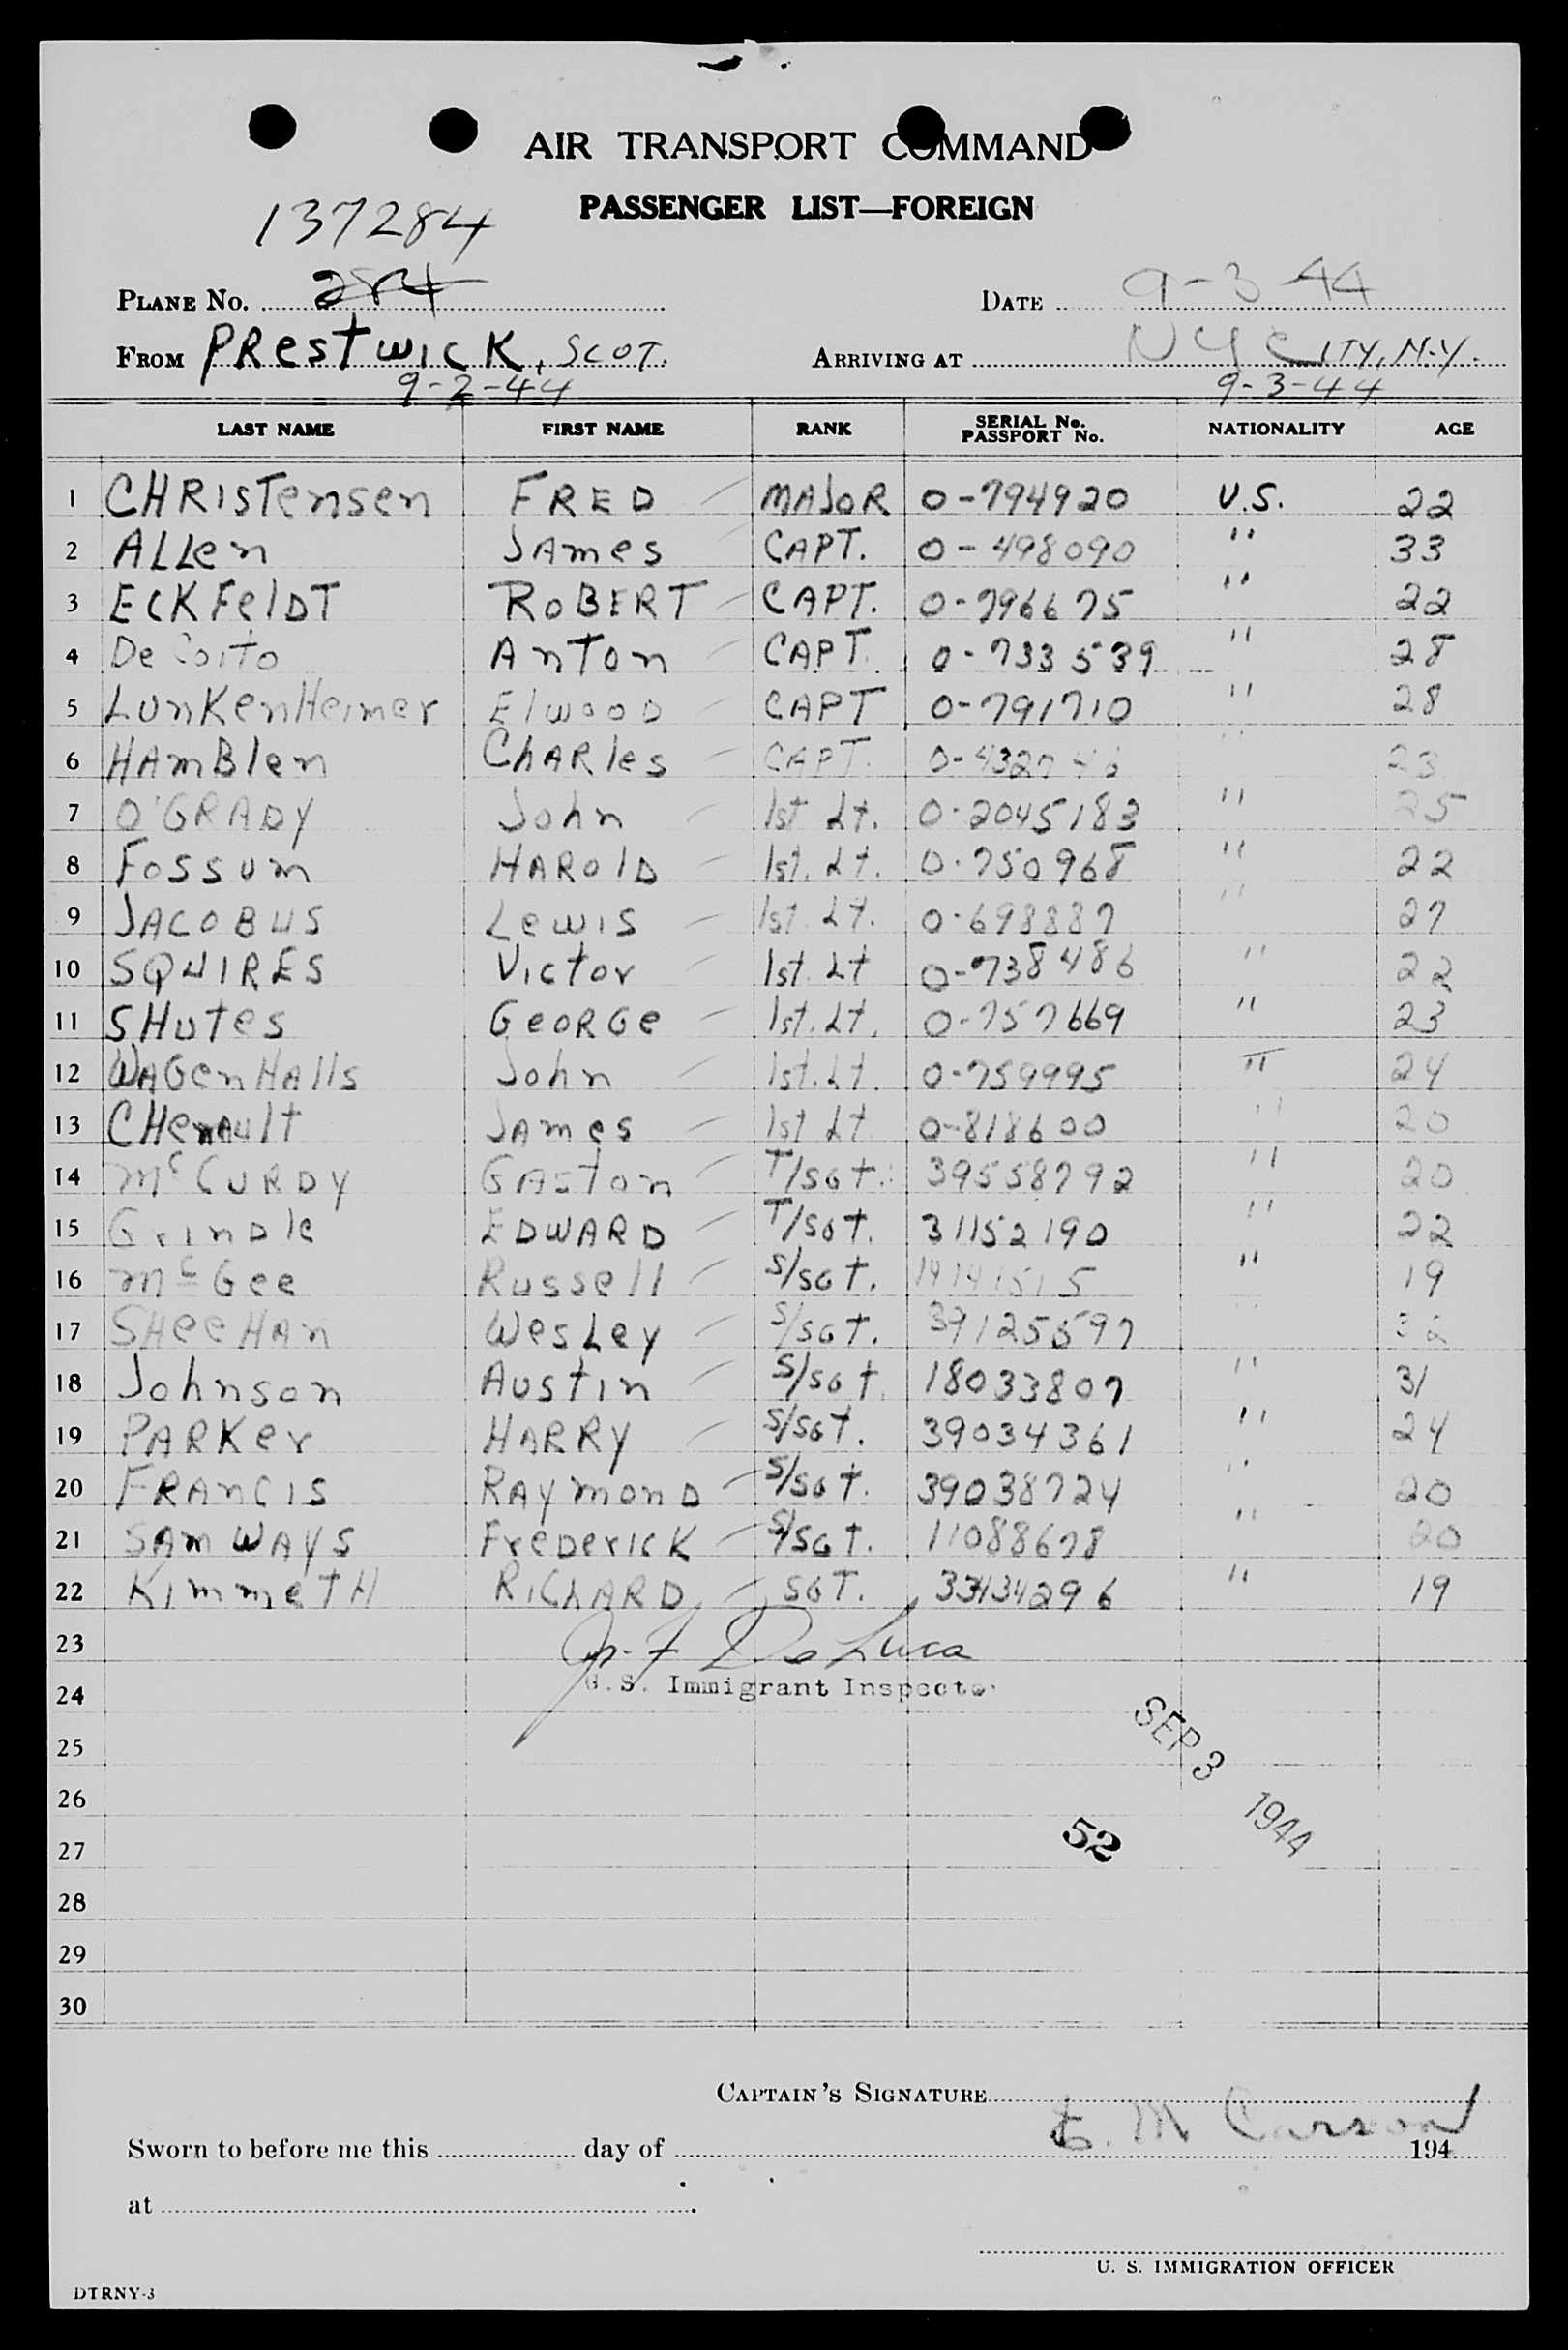 AIR TRANSPORT COMMAND
PASSENGER LIST—FOREIGN
137284
PLANE No. 284 DATE 9-3-44
FROM PRestwick, SCOT. ARRIVING AT NYCITY, N.Y.
9-2-44 9-3-44
LAST NAME FIRST NAME RANK SERIAL No. PASSPORT No. NATIONALITY AGE
1 CHRISTensen FRED MAJOR 0-794920 U.S. 22
2 ALLen JAmes CAPT. 0-498090 " 33
3 ECKFelDT RoBERT CAPT. 0-796675 " 22
4 De Corto Anton CAPT. 0-733539 " 28
5 LunKenHeimer Elwood CAPT 0-791710 " 28
6 HAmBlen ChARles CAPT. " 23
7 O'GRADY John 1st Lt. 0-2045183 " 25
8 Fossum HARolD 1st. Lt. 0-750968 " 22
9 JACOBUS Lewis 1st Lt. 0-698887 " 27
10 SQUIRES Victor 1st Lt 0-738486 " 22
11 SHutes GeoRGe 1st. Lt. 0-757669 " 23
12 WAGenHAlls John 1st. Lt. 0-759995 " 24
13 CHenAult JAmes 1st Lt 0-818600 " 20
14 McCURDY GAston T/SGt. 39558792 " 20
15 GrinDle EDWARD T/SGt. 31152190 " 22
16 McGee Russell S/SGT. 14141515 " 19
17 SHeeHAn WesLey S/SGT. " 32
18 Johnson Austin S/SGt. 18033807 " 31
19 PARKer HARRY S/SGT. 39034361 " 24
20 FRANCIS RAymonD S/SGt. 39038724 " 20
21 SAmWAYS FreDerick S/SGT. 11088678 " 20
22 KimmeTH RIChARD SGT. 33134296 " 19
23 De Luca
24 U.S. Immigrant Inspector
25
26
27
28
29
30
SEP 3 1944
52
CAPTAIN'S SIGNATURE E. M Carson
Sworn to before me this day of 194
at
U. S. IMMIGRATION OFFICER
DTRNY-3